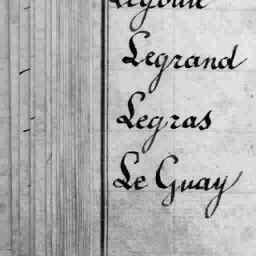 Legrand
Legras
Le Guay